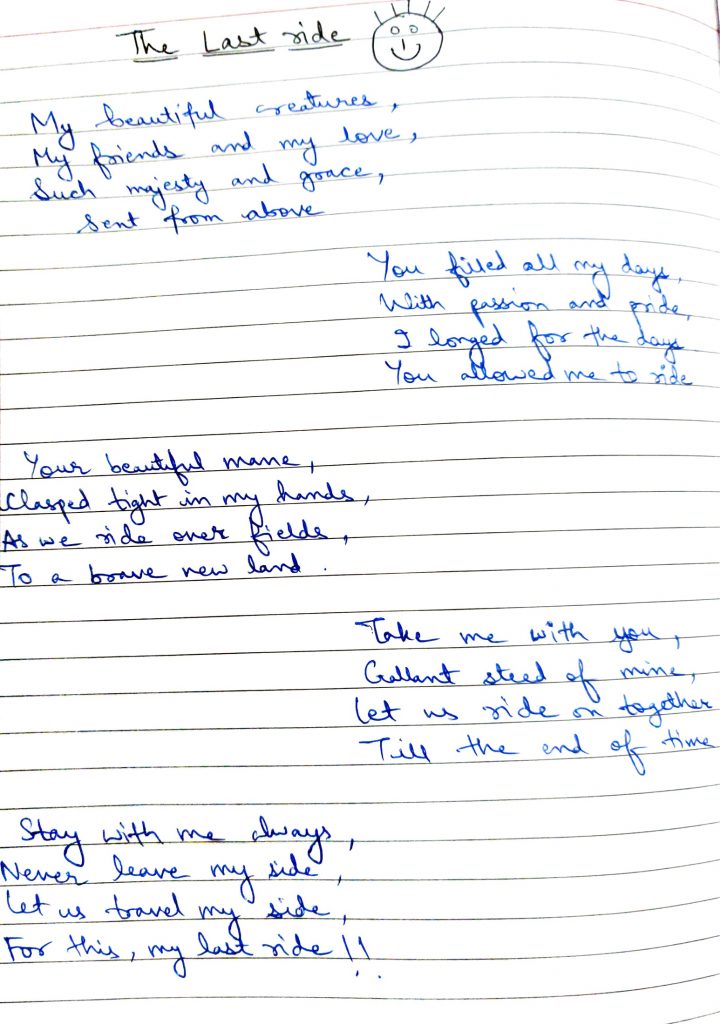 The Last ride
My beautiful creatures,
My friends and my love,
Such majesty and grace,
Sent from above
You filled all my days,
With passion and pride,
I longed for the days
You allowed me to ride
Your beautiful mane,
Clasped tight in my hands,
As we ride over fields,
To a brave new land.
Take me with you,
Gallant steed of mine,
Let us ride on together
Till the end of time
Stay with me always,
Never leave my side,
Let us travel my side,
For this, my last ride !!